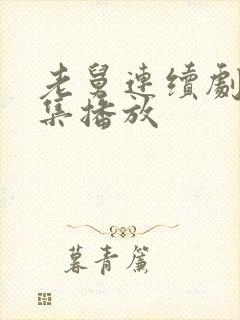 老舅連續劇
集播放
暮青簾